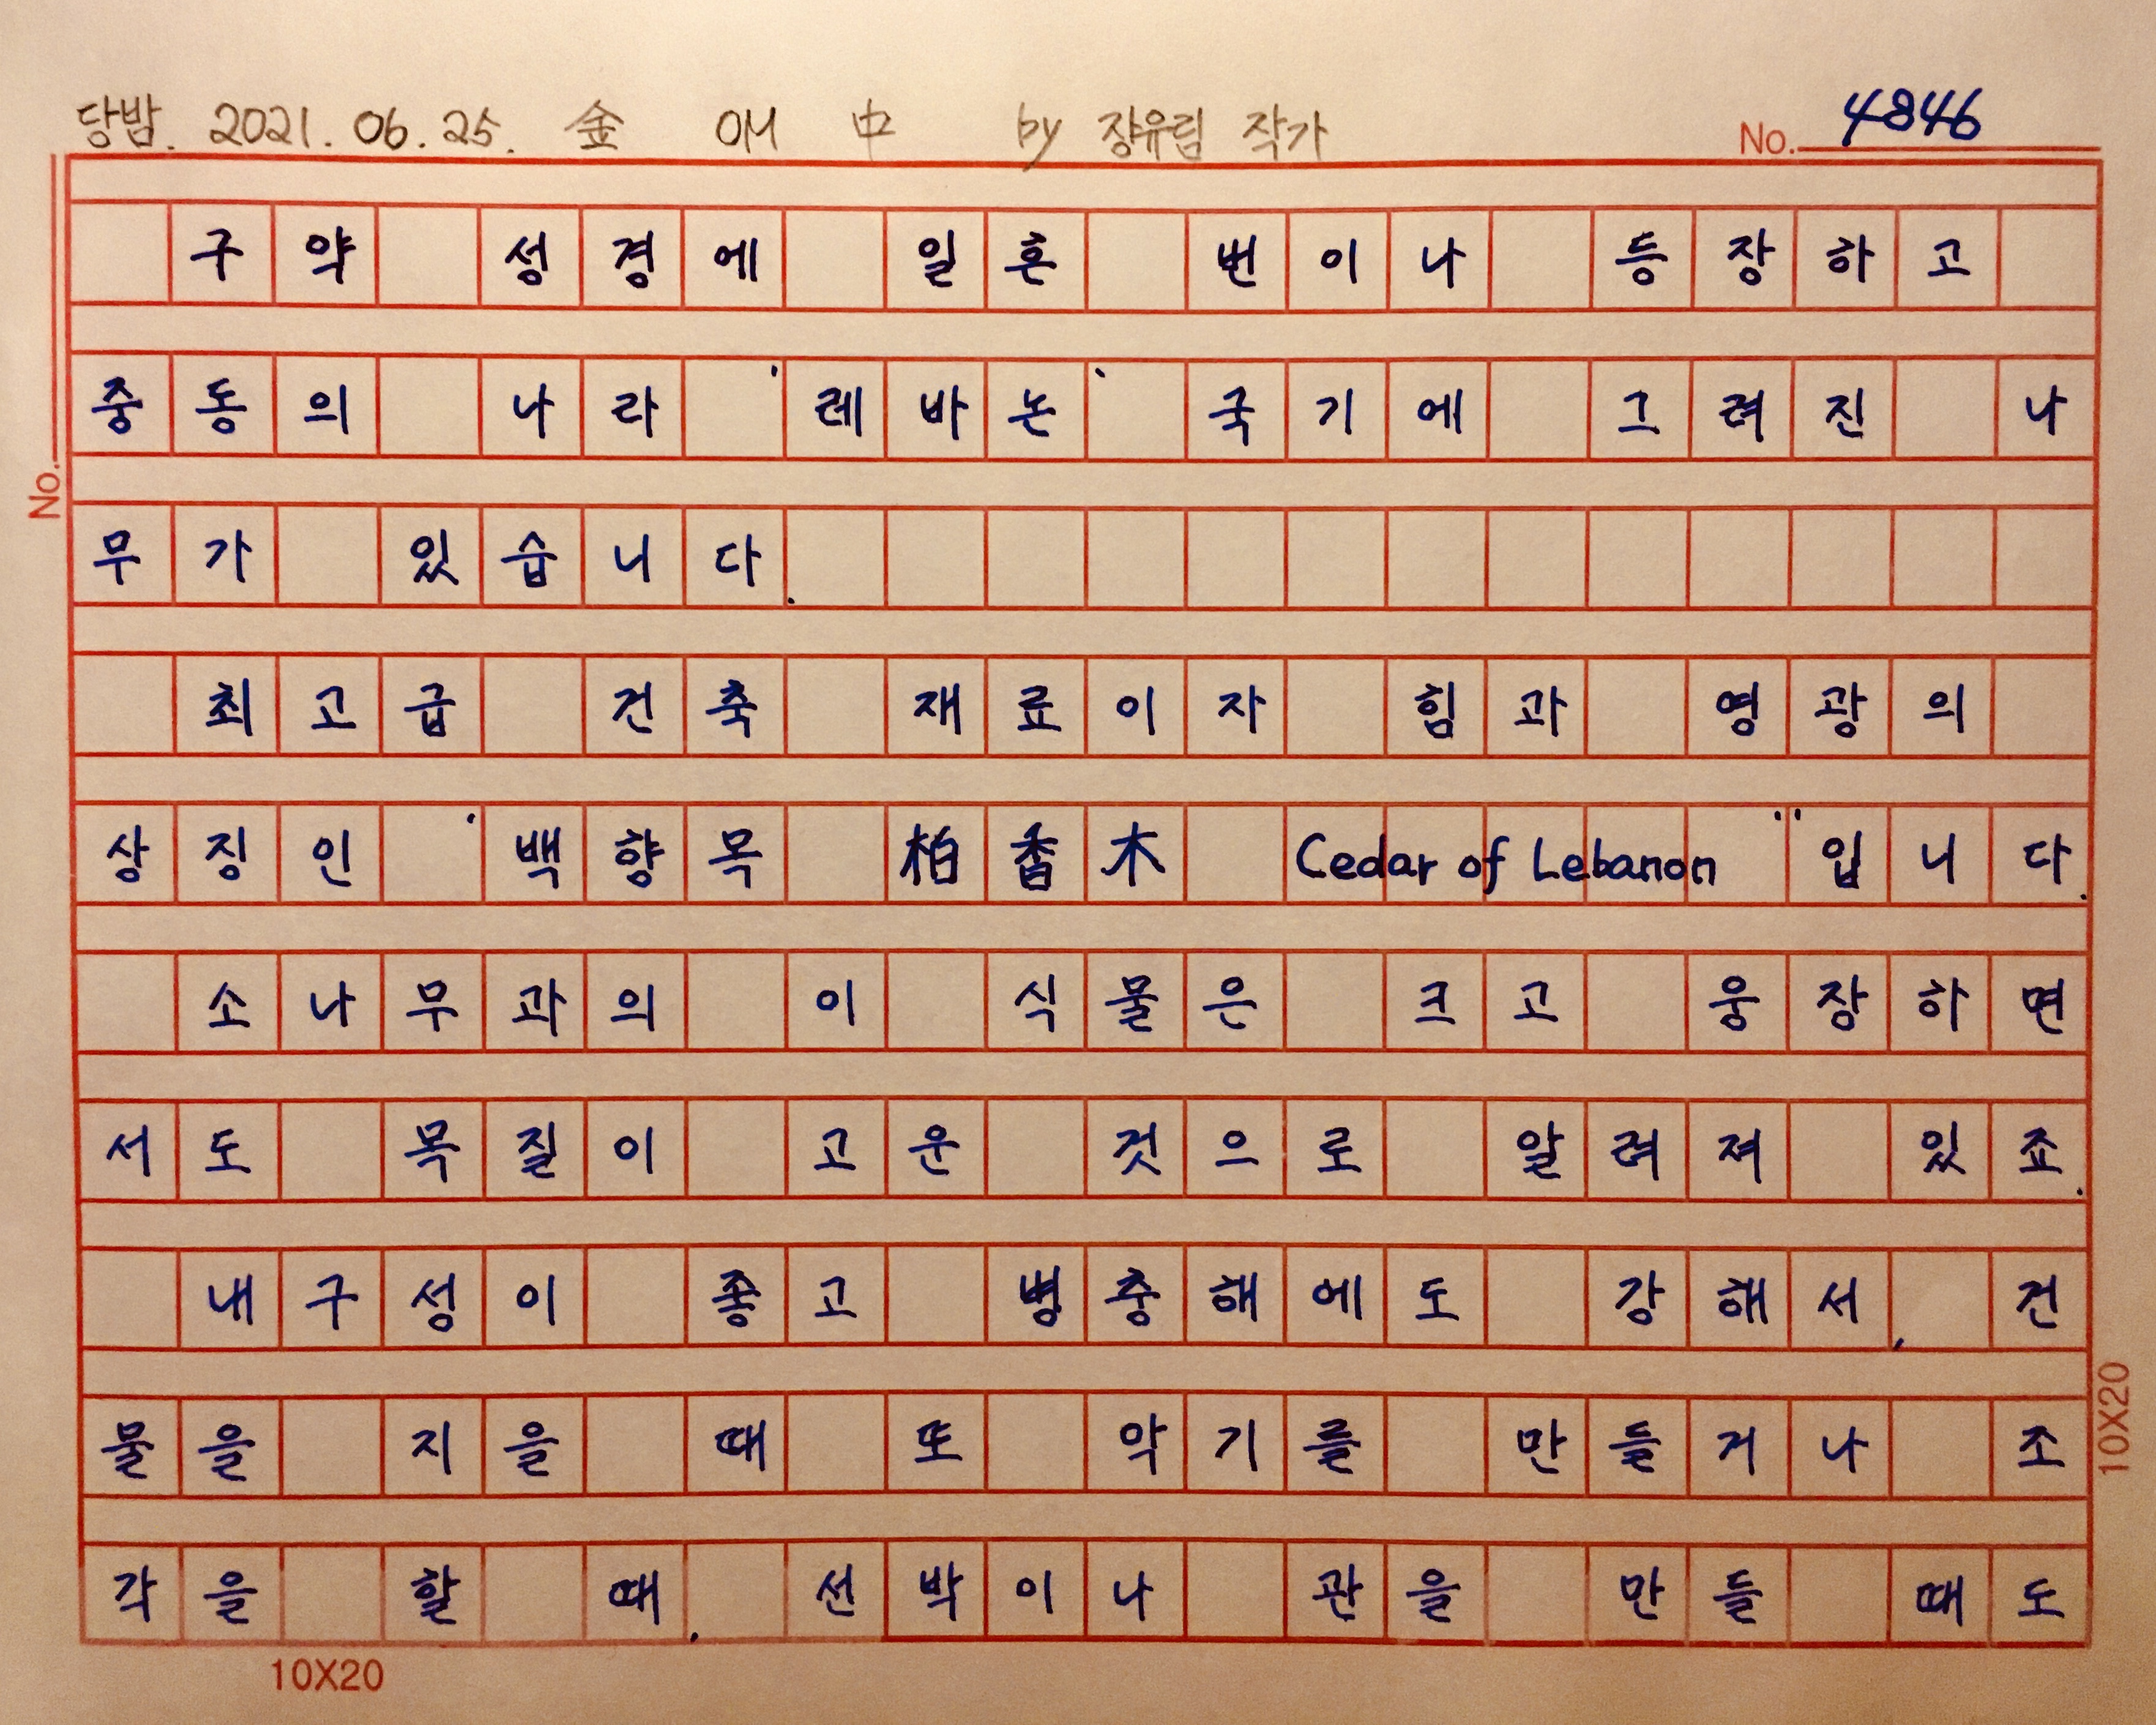 당밤. 2021. 06. 25. 金 OM 中 by 장유림 작가
No. 4846
구약 성경에 일흔 번이나 등장하고
중동의 나라 '레바논' 국기에 그려진 나
무가 있습니다.
최고급 건축 재료이자 힘과 영광의
상징인 '백향목 柏香木 Cedar of Lebanon''입니다.
소나무과의 이 식물은 크고 웅장하면
서도 목질이 고운 것으로 알려져 있죠.
내구성이 좋고 병충해에도 강해서, 건
물을 지을 때 또 악기를 만들거나 조
각을 할 때, 선박이나 관을 만들 때도
No.
10X20
10X20